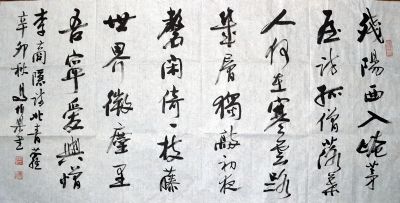 殘陽西入崦茅
屋訪孤僧落葉
人何在寒雲路
幾層獨敲初夜
磬閑倚一枝藤
世界微塵里
吾寧愛與憎
李商隱詩北青蘿
辛卯秋